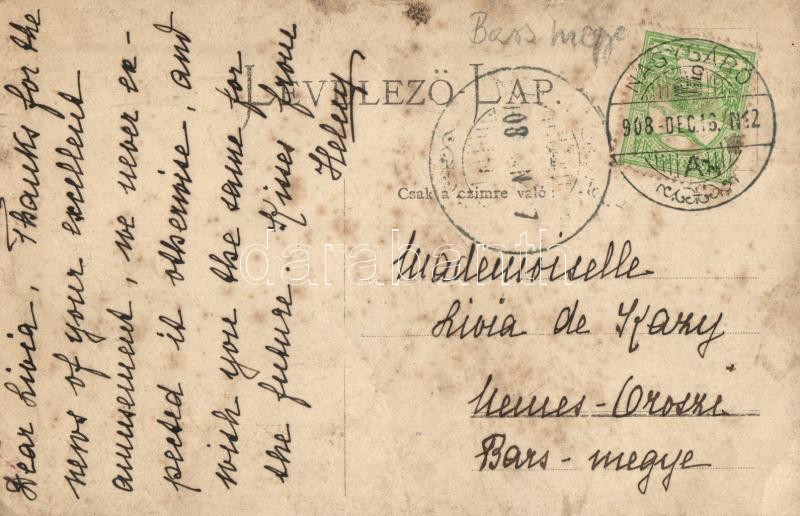 Dear Livia, Thanks for the
news of your excellent
amusement, we never ex-
pected it otherwise, and
wish you the same for
the future. Kisses from
Helery
Bars megye
LEVELEZŐ LAP.
Csak a czimre való:
NAGYBÁRÓD
908-DEC.16. N12
908
darabanth
Mademoiselle
Livia de Kazy
Nemes-Oroszi
Bars-megye